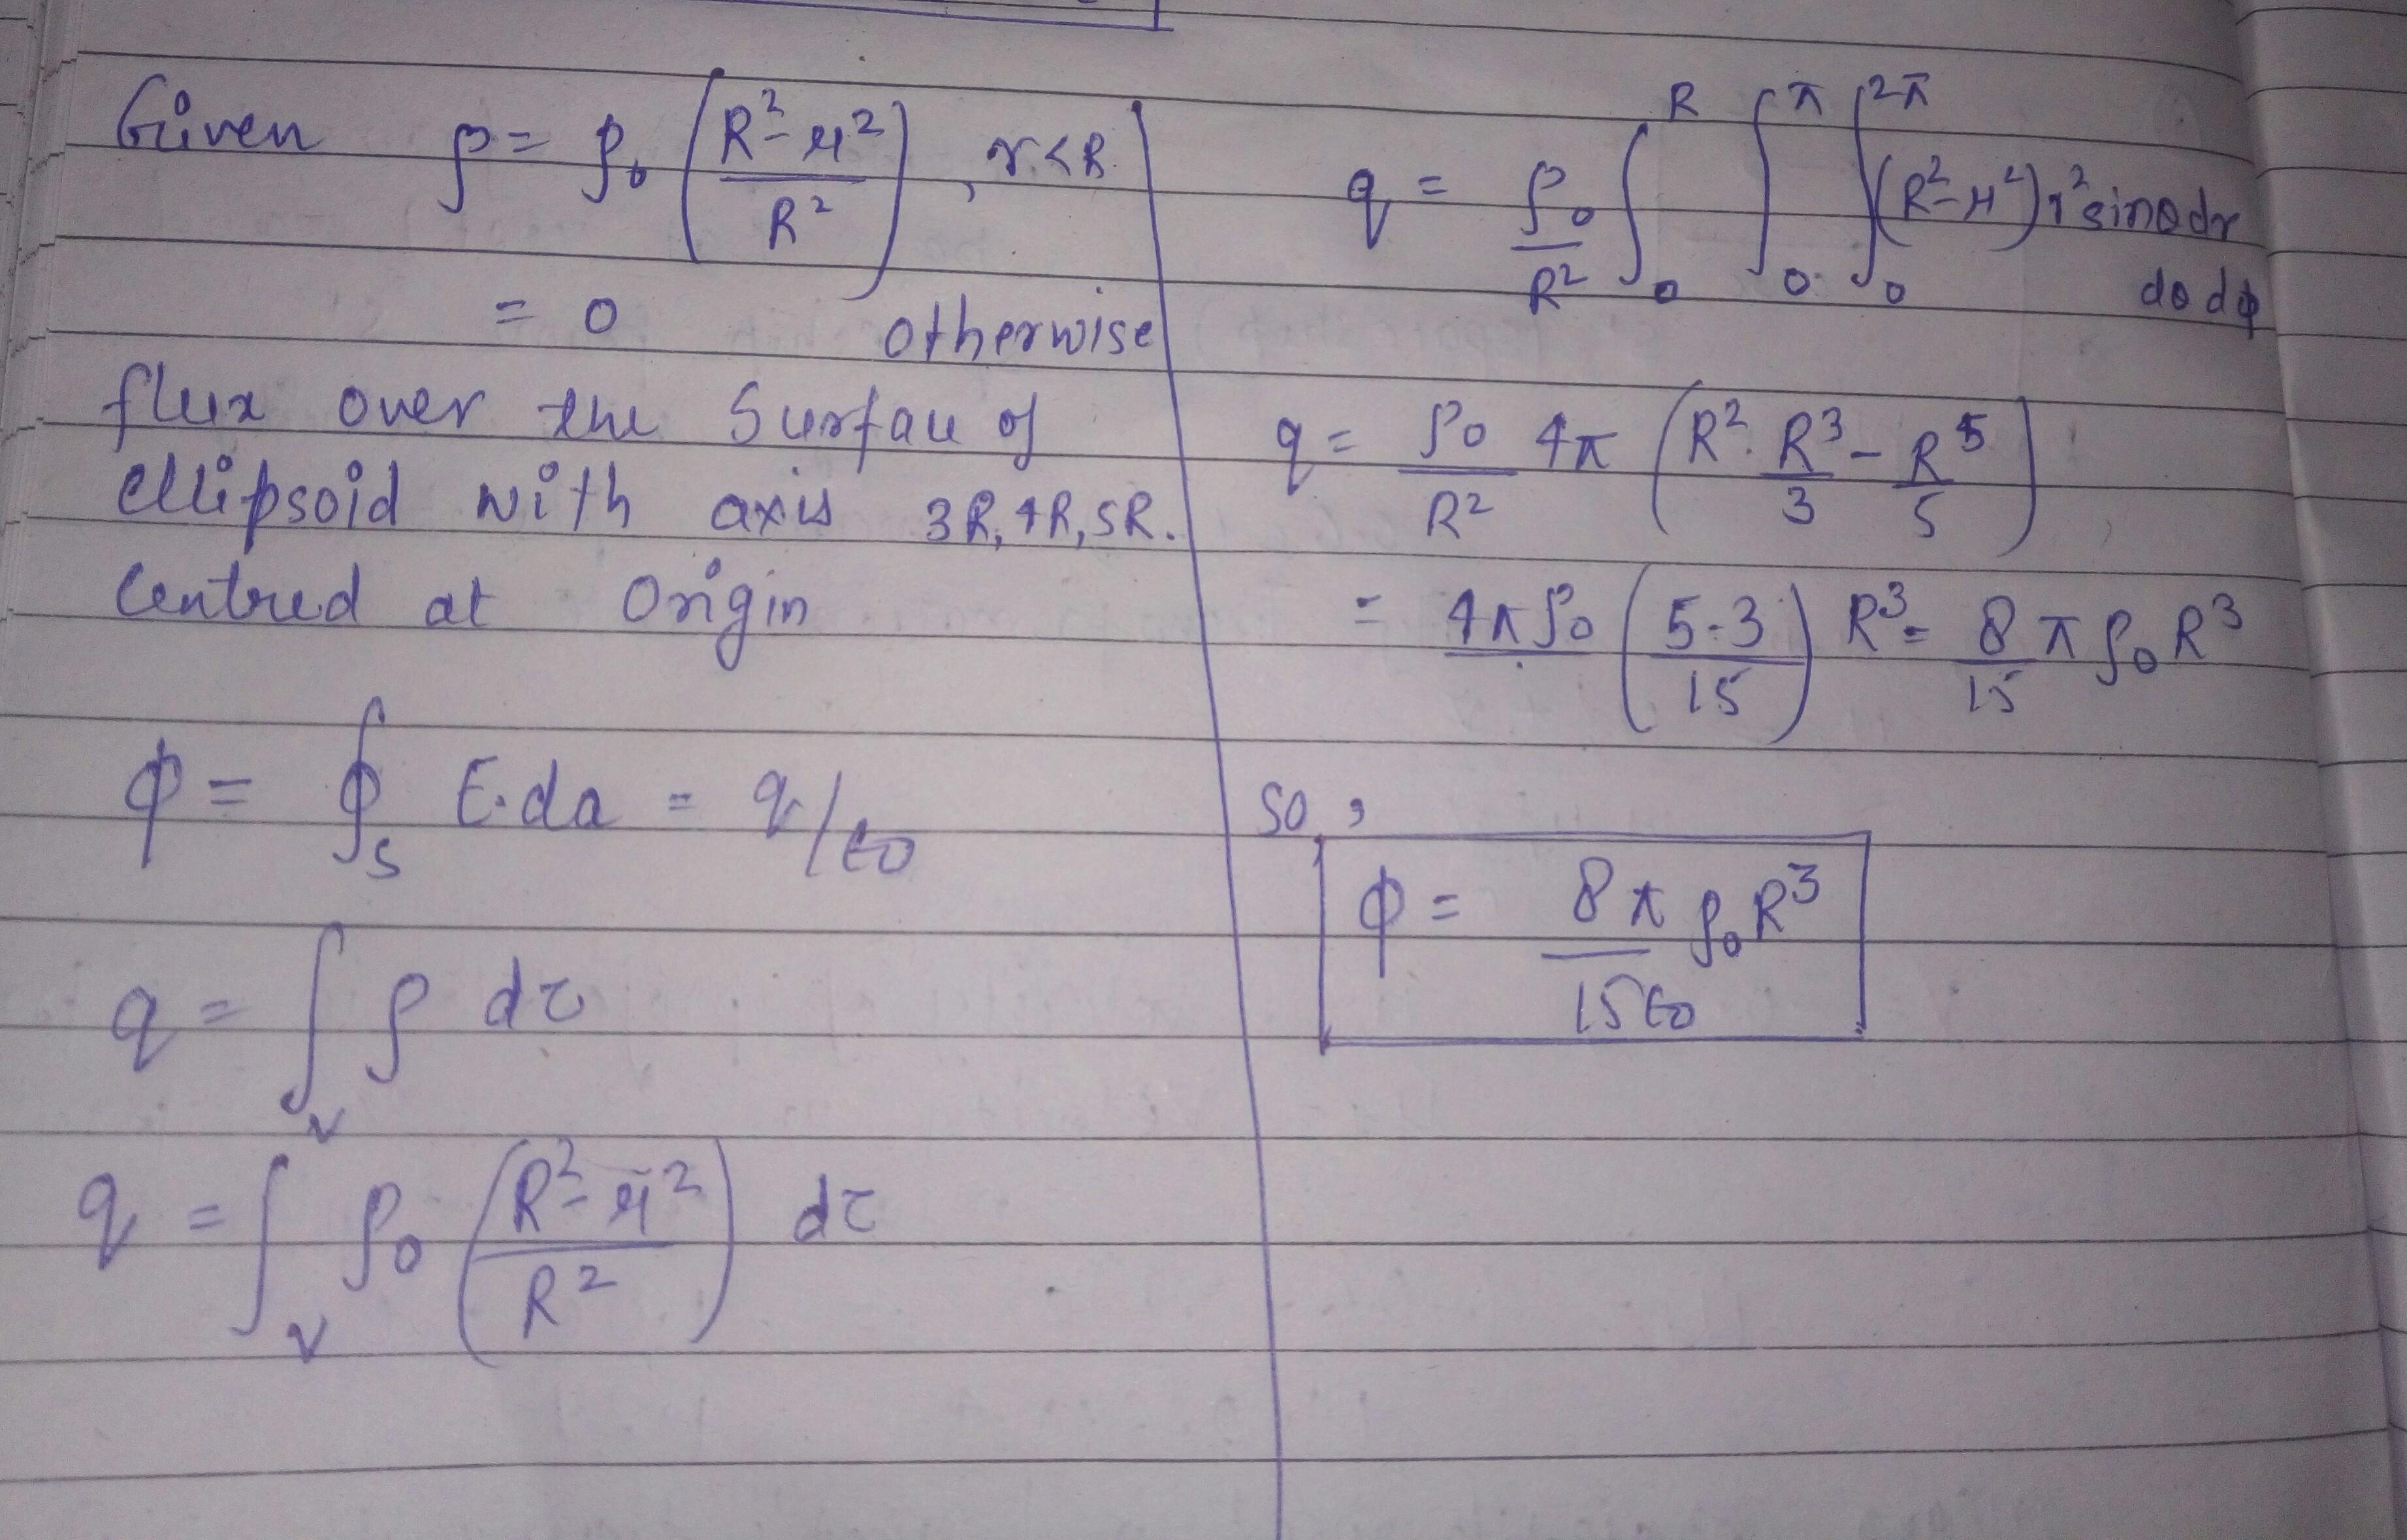 Given ρ = ρ₀ ((R² - r²)/R²), r < R
= 0 otherwise
flux over the Surface of
ellipsoid with axis 3R, 4R, 5R.
Centred at Origin
ϕ = ∮_S E.da = q/ϵ₀
q = ∫_V ρ dτ
q = ∫_V ρ₀ ((R² - r²)/R²) dτ
q = ρ₀/R² ∫₀^R ∫₀^π ∫₀^2π (R² - r²) r² sinθ dr
dθ dϕ
q = ρ₀/R² 4π (R². R³/3 - R⁵/5)
= 4πρ₀ ((5-3)/15) R³ = 8/15 π ρ₀ R³
So,
ϕ = 8π/15ϵ₀ ρ₀R³